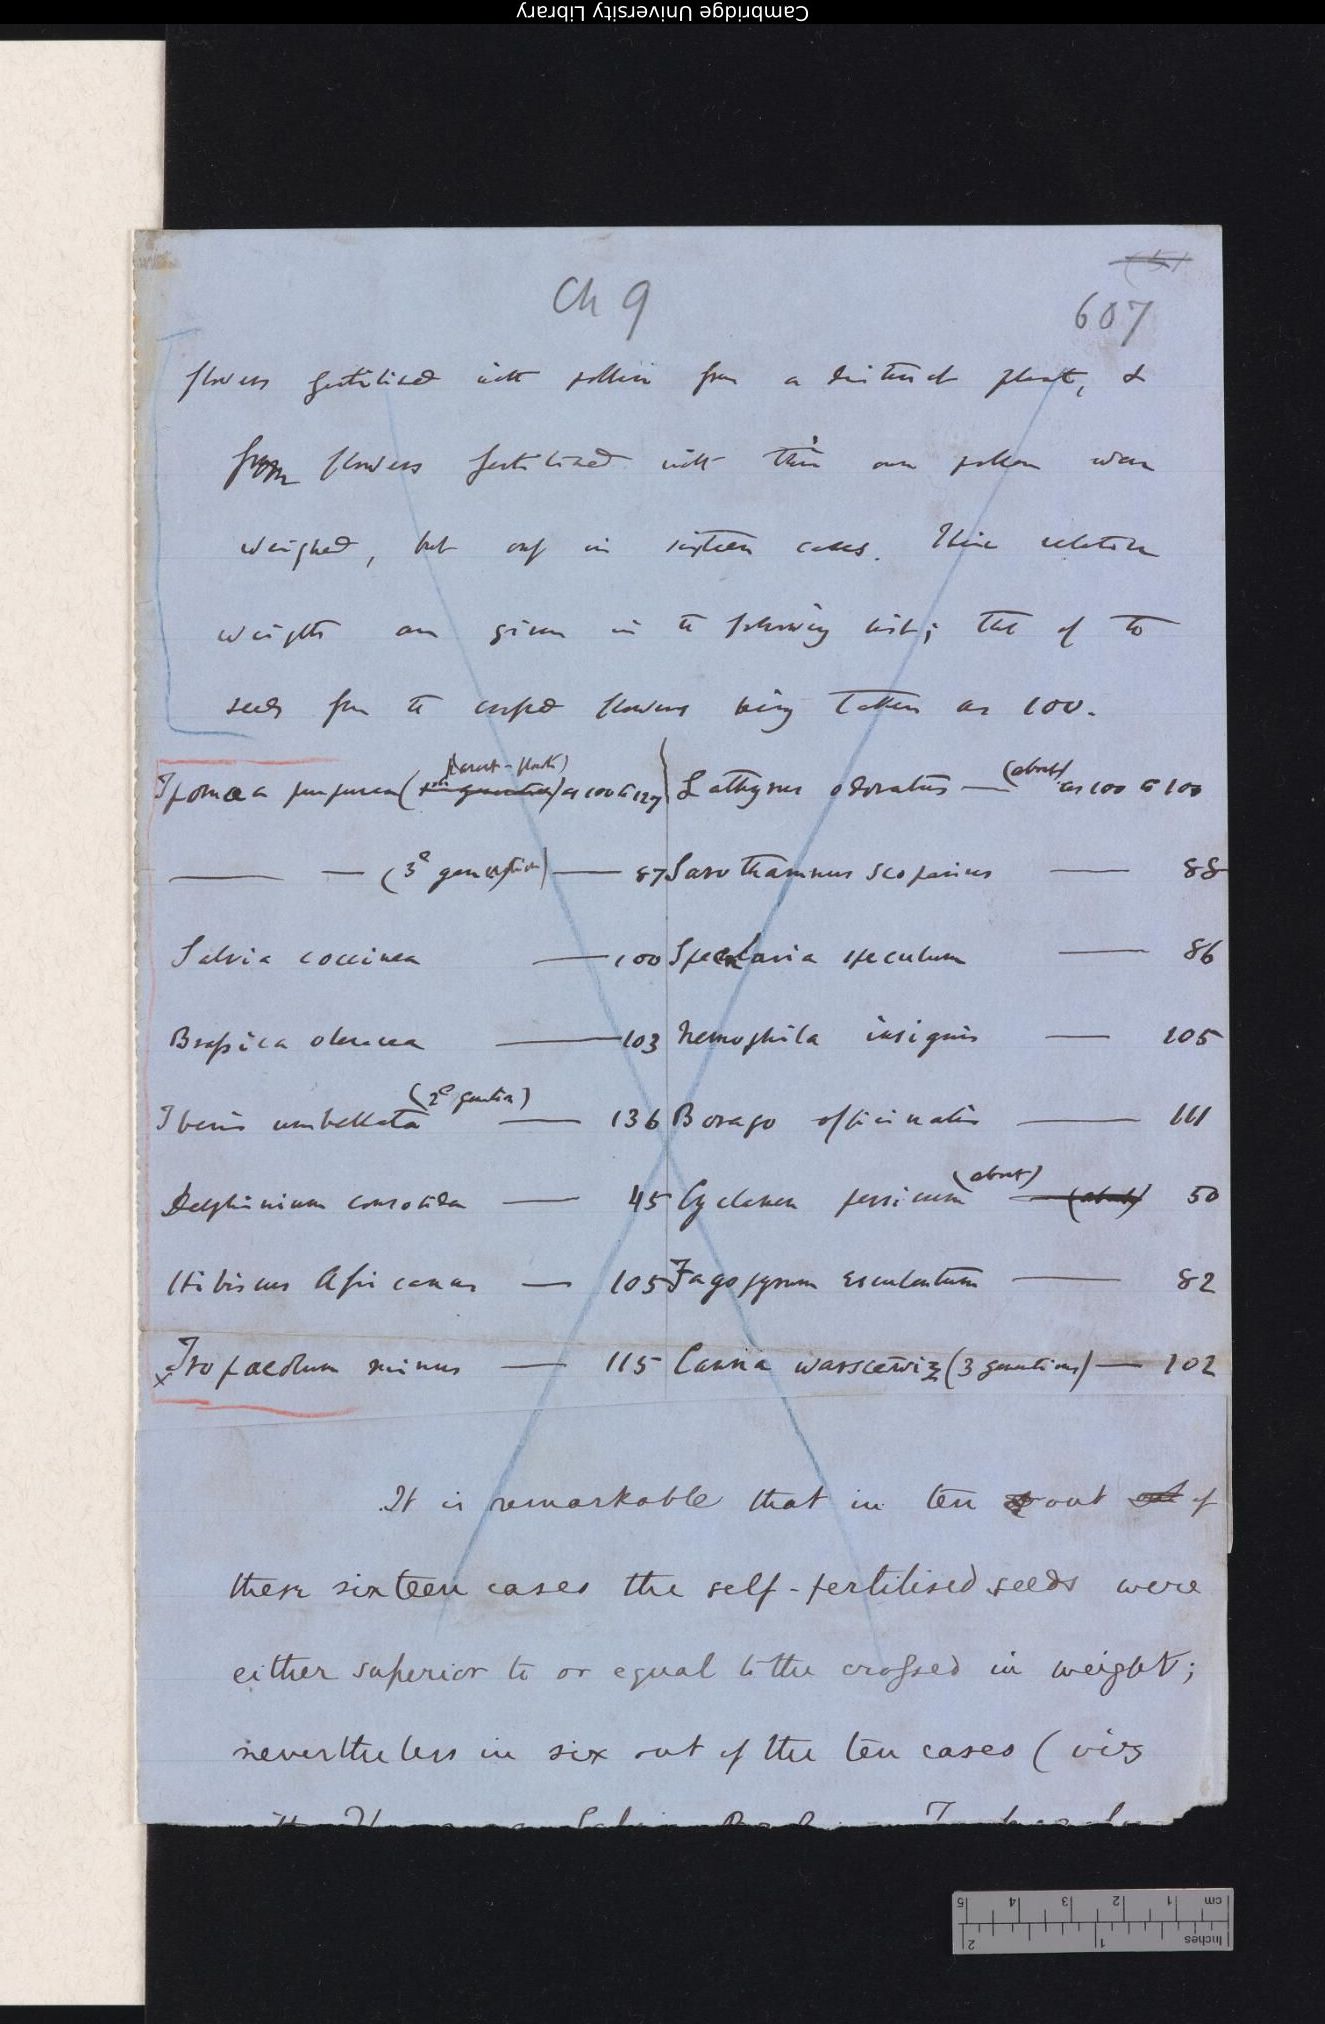 Cambridge University Library
Ch 9
607
flowers fertilised with pollen from a distinct plant, &
from flowers fertilised with their own pollen was
weighed, but only in sixteen cases. Their relative
weights are given in the following list; that of the
seeds from the crossed flowers being taken as 100.
Ipomœa purpurea (parent-plants) as 100 to 127
Lathyrus odoratus — (about) as 100 to 100
— — (3d generation) — 87
Sarothamnus scoparius — 88
Salvia coccinea — 100
Specularia speculum — 86
Brassica oleracea — 103
Nemophila insignis — 105
Iberis umbellata (2d generation) — 136
Borago officinalis — 111
Delphinium consolida — 45
Cyclamen persicum (about) — (about) 50
Hibiscus Africanus — 105
Fagopyrum esculentum — 82
x Tropaeolum minus — 115
Canna warscewizi (3 generations) — 102
It is remarkable that in ten out of
these sixteen cases the self-fertilised seeds were
either superior to or equal to the crossed in weight;
nevertheless in six out of the ten cases (viz
cm 1 2 3 4 5
Inches 1 2